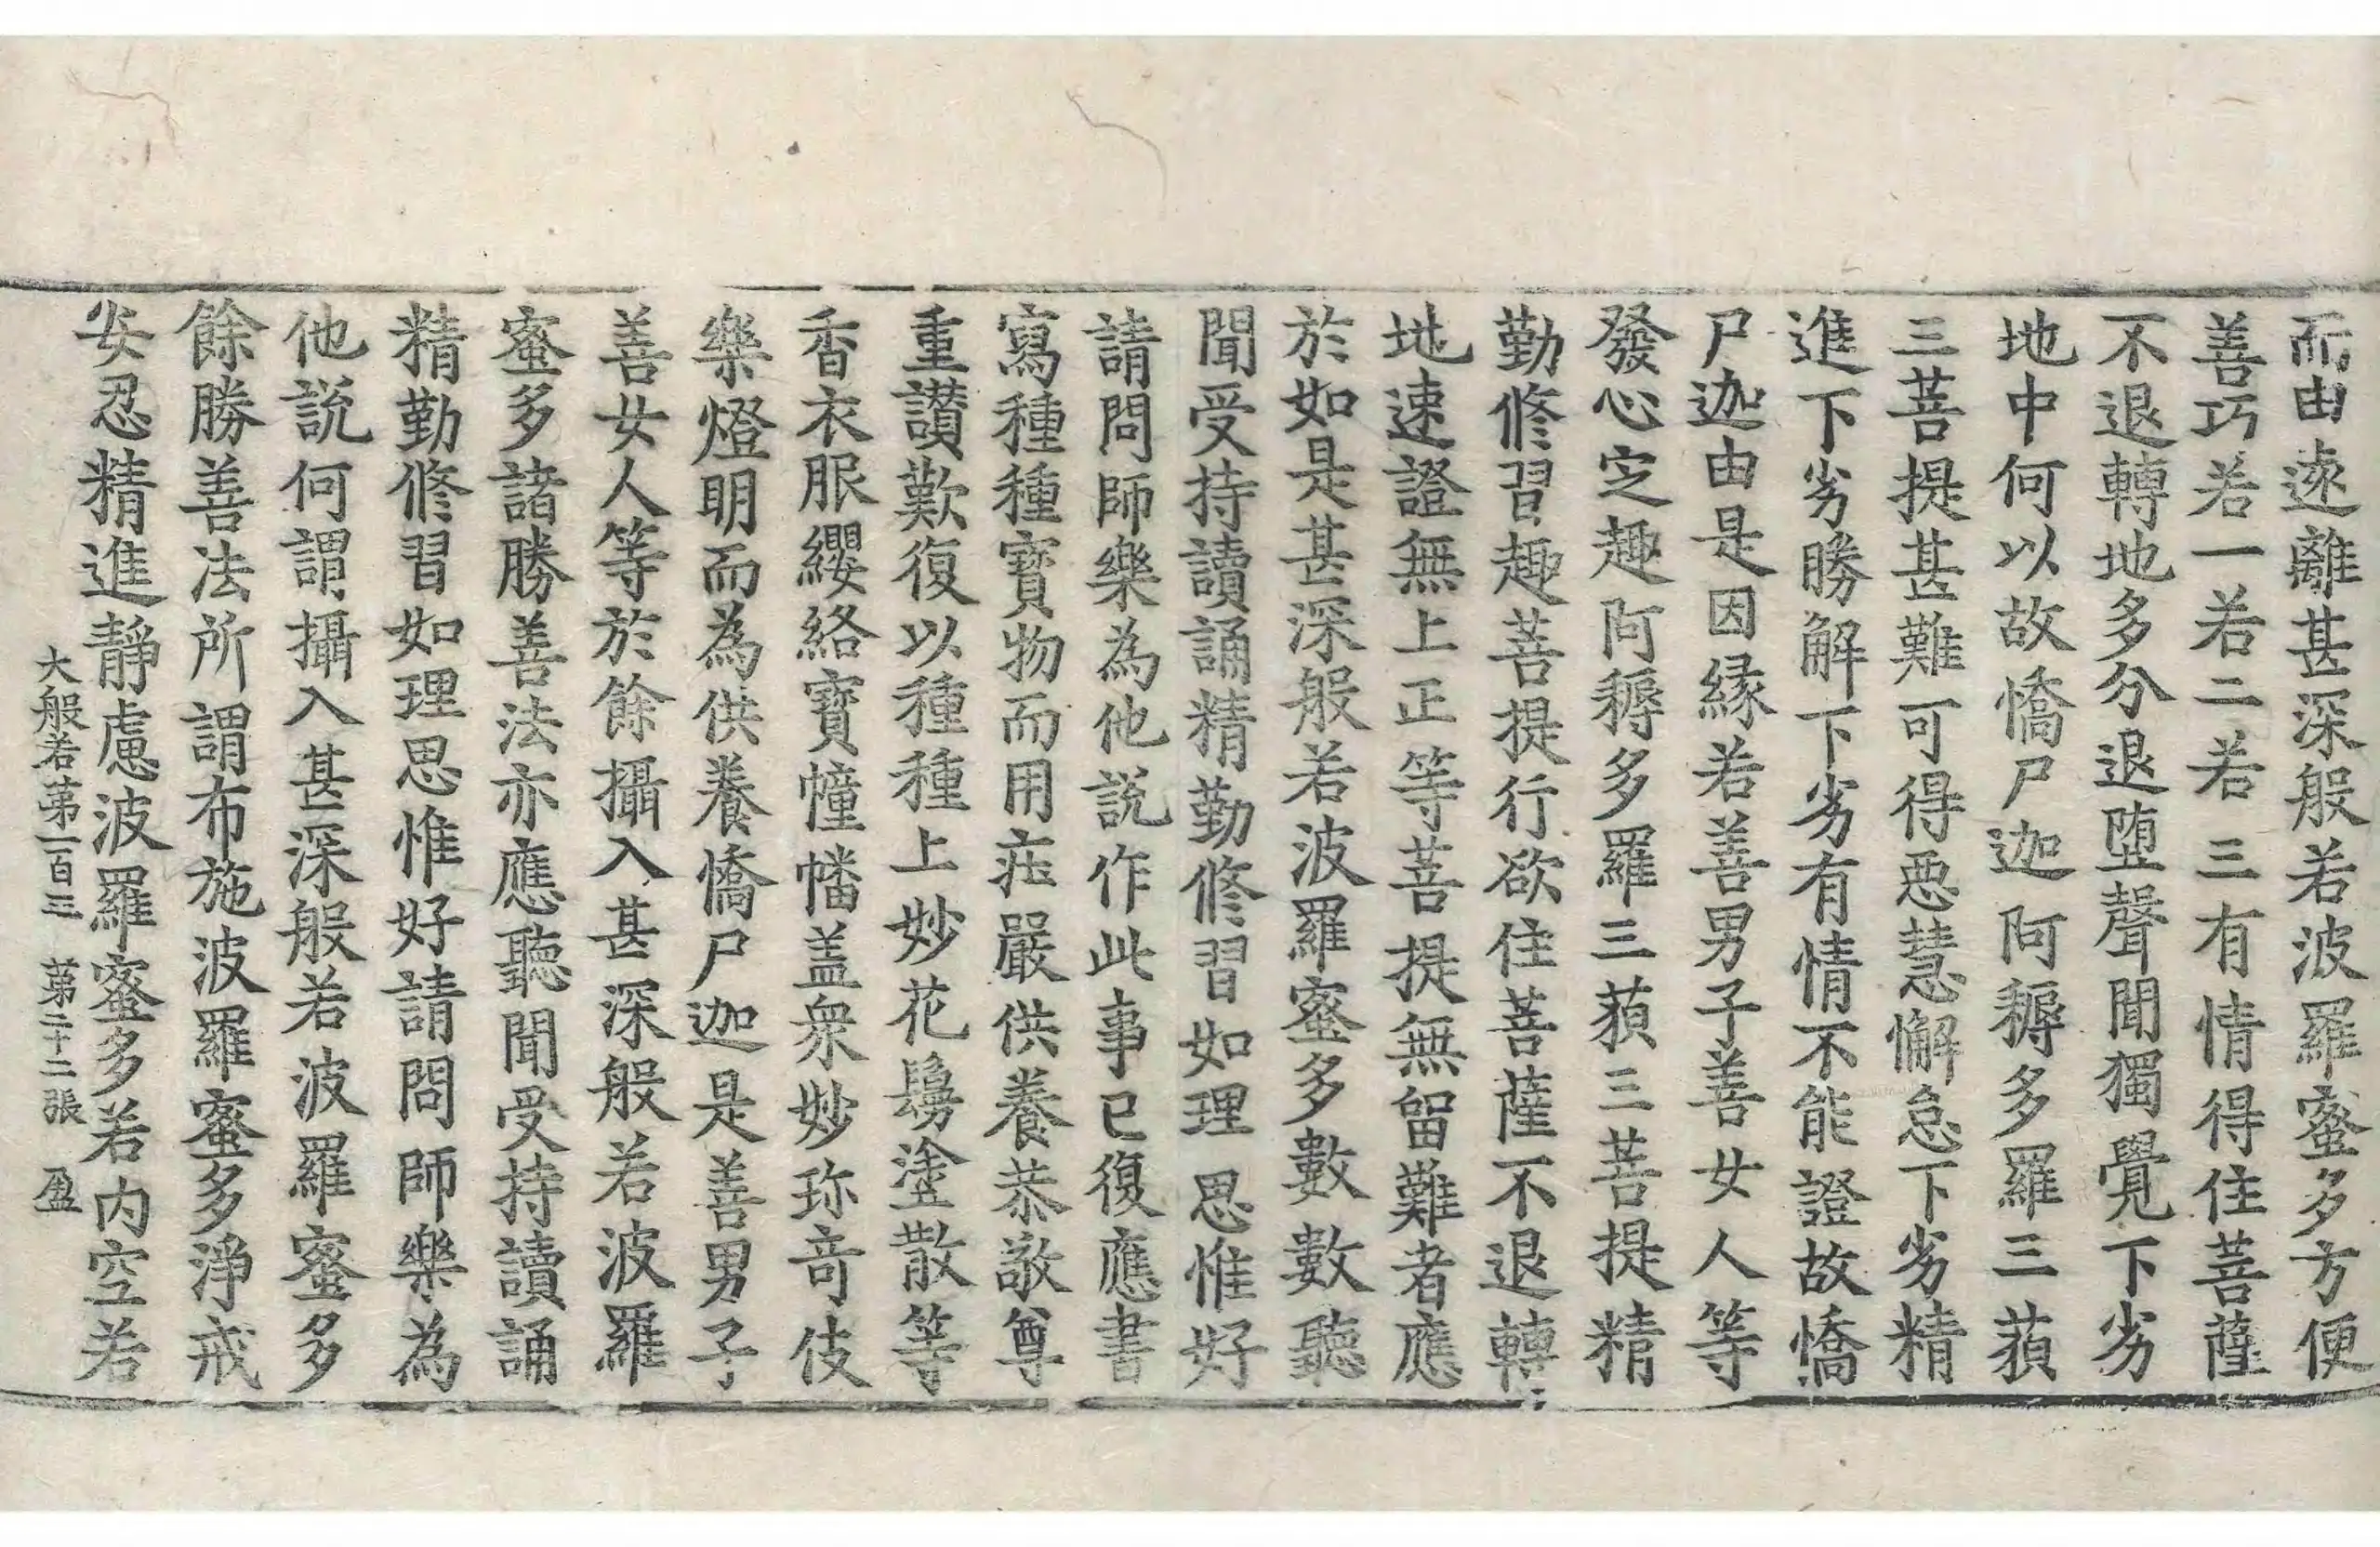 而由遠離甚深般若波羅蜜多方便
善巧若一若二若三有情得住菩薩
不退轉地多分退墮聲聞獨覺下劣
地中何以故憍尸迦阿耨多羅三藐
三菩提甚難可得惡慧懈怠下劣精
進下劣勝解下劣有情不能證故憍
尸迦由是因緣若善男子善女人等
發心定趣阿耨多羅三藐三菩提精
勤修習趣菩提行欲住菩薩不退轉
地速證無上正等菩提無留難者應
於如是甚深般若波羅蜜多數數聽
聞受持讀誦精勤修習如理思惟好
請問師樂為他說作此事已復應書
寫種種寶物而用莊嚴供養恭敬尊
重讚歎復以種種上妙花鬘塗散等
香衣服纓絡寶幢幡盖衆妙珎奇伎
樂燈明而為供養憍尸迦是善男子
善女人等於餘攝入甚深般若波羅
蜜多諸勝善法亦應聽聞受持讀誦
精勤修習如理思惟好請問師樂為
他說何謂攝入甚深般若波羅蜜多
餘勝善法所謂布施波羅蜜多淨戒
安忍精進靜慮波羅蜜多若內空若
大般若第一百三 第二十二張 盈